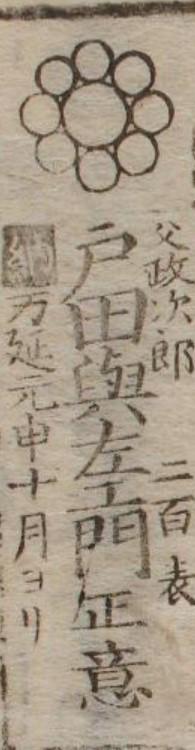 父政次郎　二百表
戸田與左エ門正意
万延元申十月ヨリ